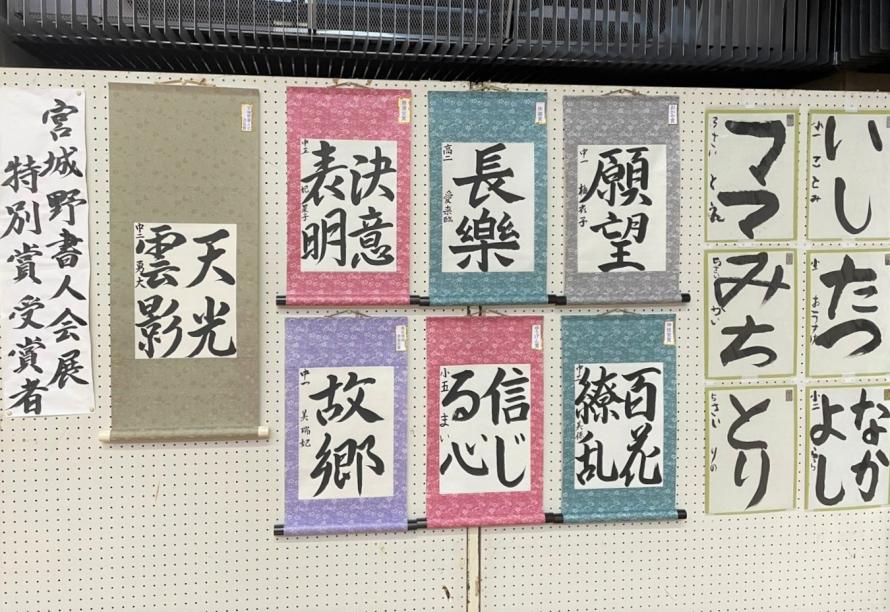 宮城野書人会展
特別賞受賞者
天光
雲影
中二 勇大
決意
表明
中三
長樂
高二 愛来臨
願望
中一
故郷
中一 美瑞妃
信じ
る心
小五 まい
百花
繚乱
ママ
いし
小一 ことみ
みち
たつ
とり
ちさい りの
なか
よし
小二